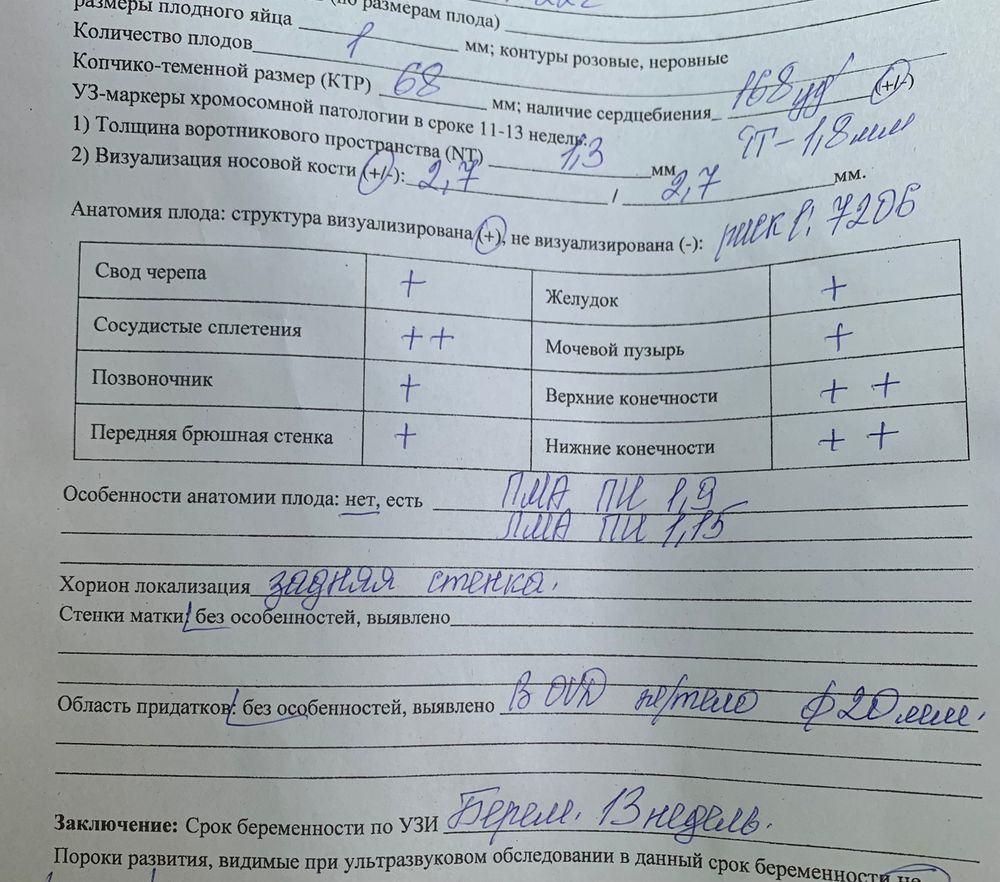 размерам плода)
размеры плодного яйца мм; контуры розовые, неровные
Количество плодов 1
Копчико-теменной размер (КТР) 68 мм; наличие сердцебиения 168 уд/ (+/-)
УЗ-маркеры хромосомной патологии в сроке 11-13 недель:
1) Толщина воротникового пространства (NT) 1,3 мм - 1,8 мм
2) Визуализация носовой кости (+/-): 2,7 / 2,7 мм.
Анатомия плода: структура визуализирована (+), не визуализирована (-): риск 1: 7206
Свод черепа + Желудок +
Сосудистые сплетения ++ Мочевой пузырь +
Позвоночник + Верхние конечности + +
Передняя брюшная стенка + Нижние конечности + +
Особенности анатомии плода: нет, есть ПМА ПИ 1,9
ЛМА ПИ 1,15
Хорион локализация задняя стенка.
Стенки матки: без особенностей, выявлено
Область придатков: без особенностей, выявлено В ж/тело ф 20 мм.
Заключение: Срок беременности по УЗИ Берем. 13 недель.
Пороки развития, видимые при ультразвуковом обследовании в данный срок беременности